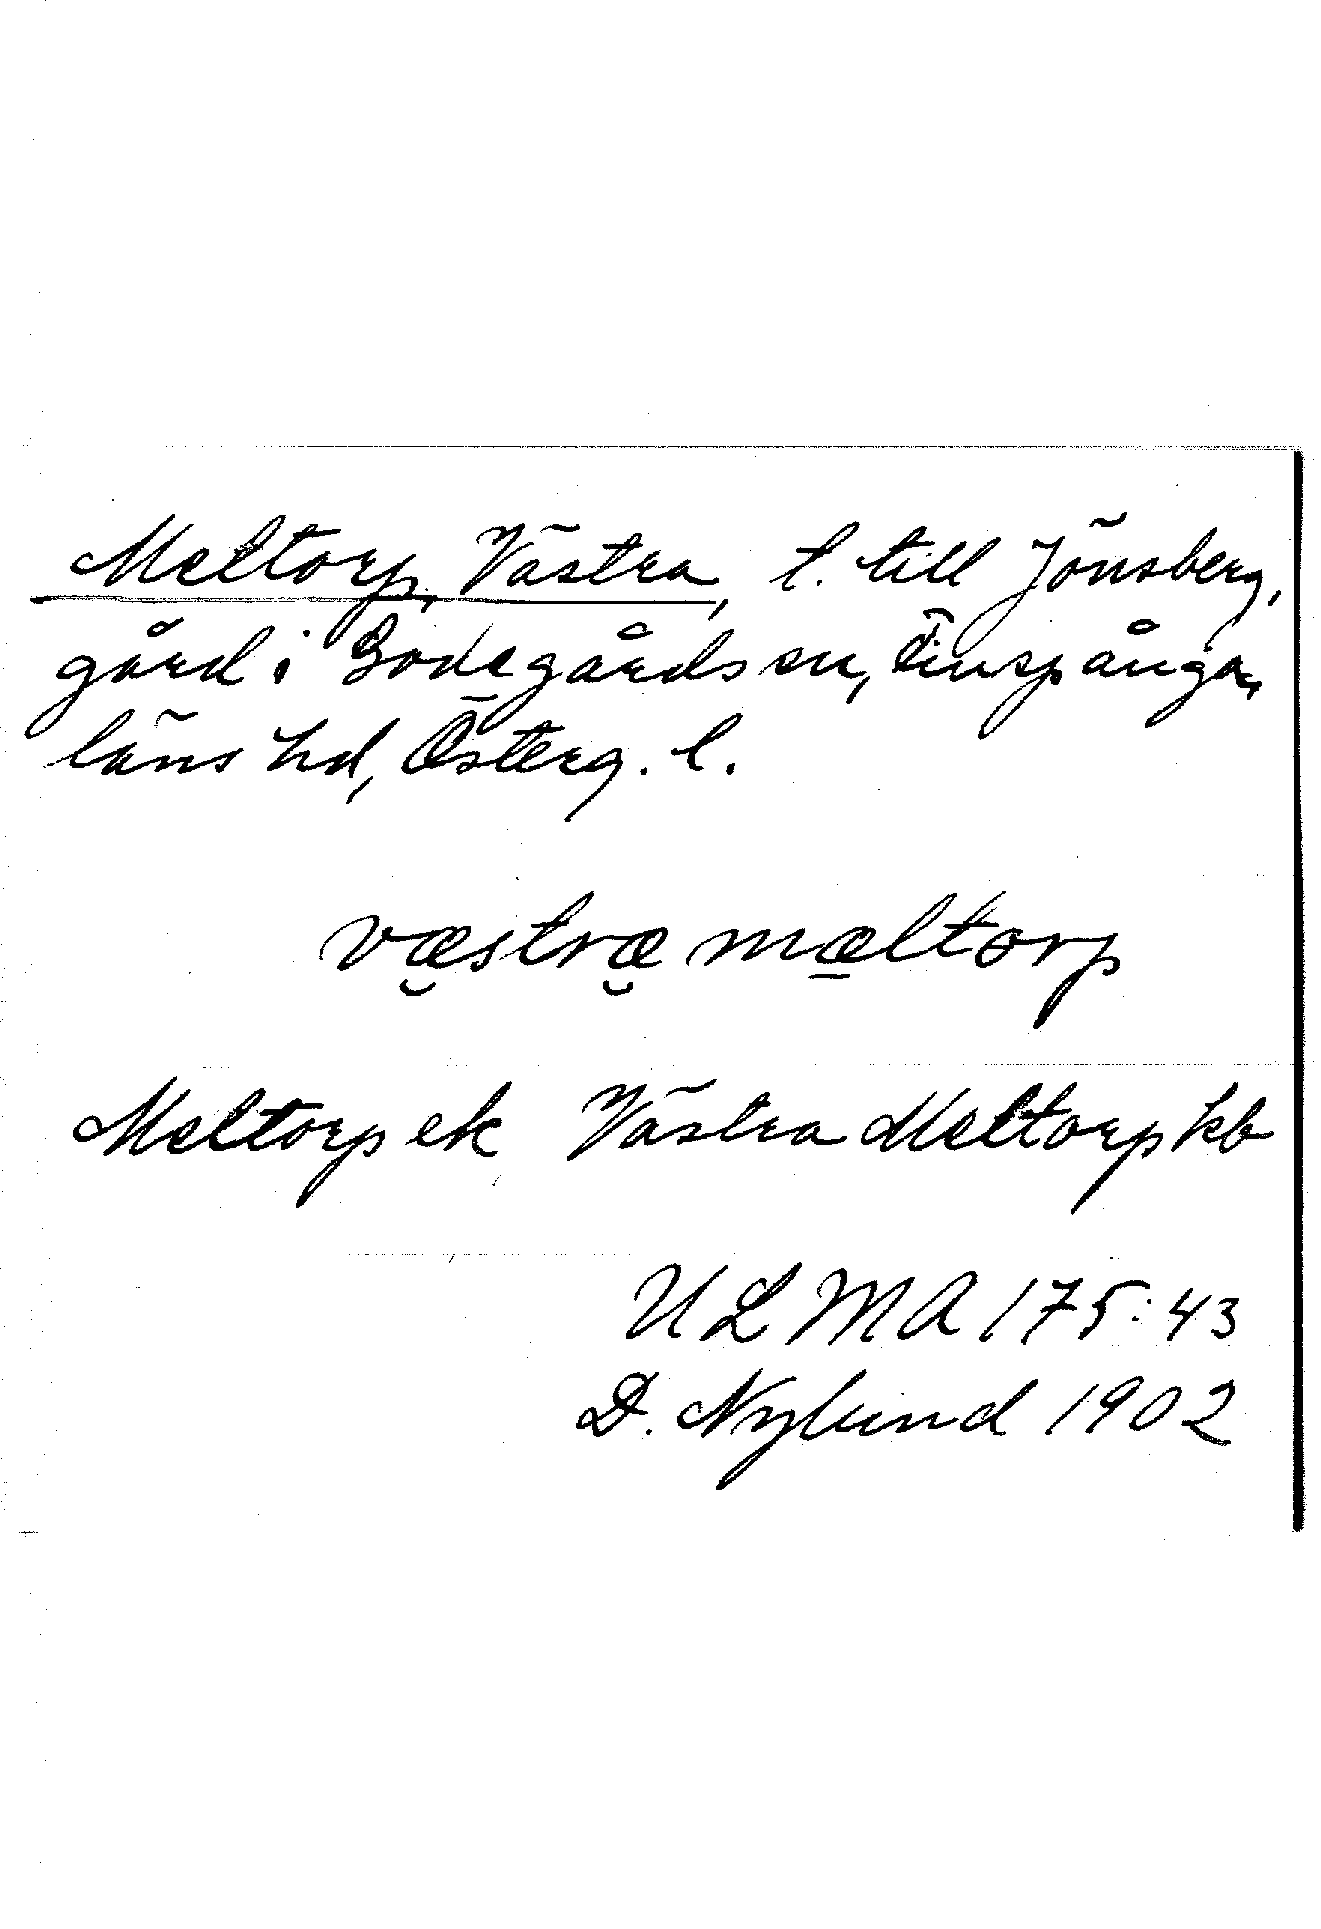 Meltorp, Västra, t. till Jönsberg,
gård i Godegårds sn, Finspånga
läns hd, Österg. l.
væstræ mæltorp
Meltorp ek Västra Meltorp kb
ULMA 175:43
D. Nylund 1902